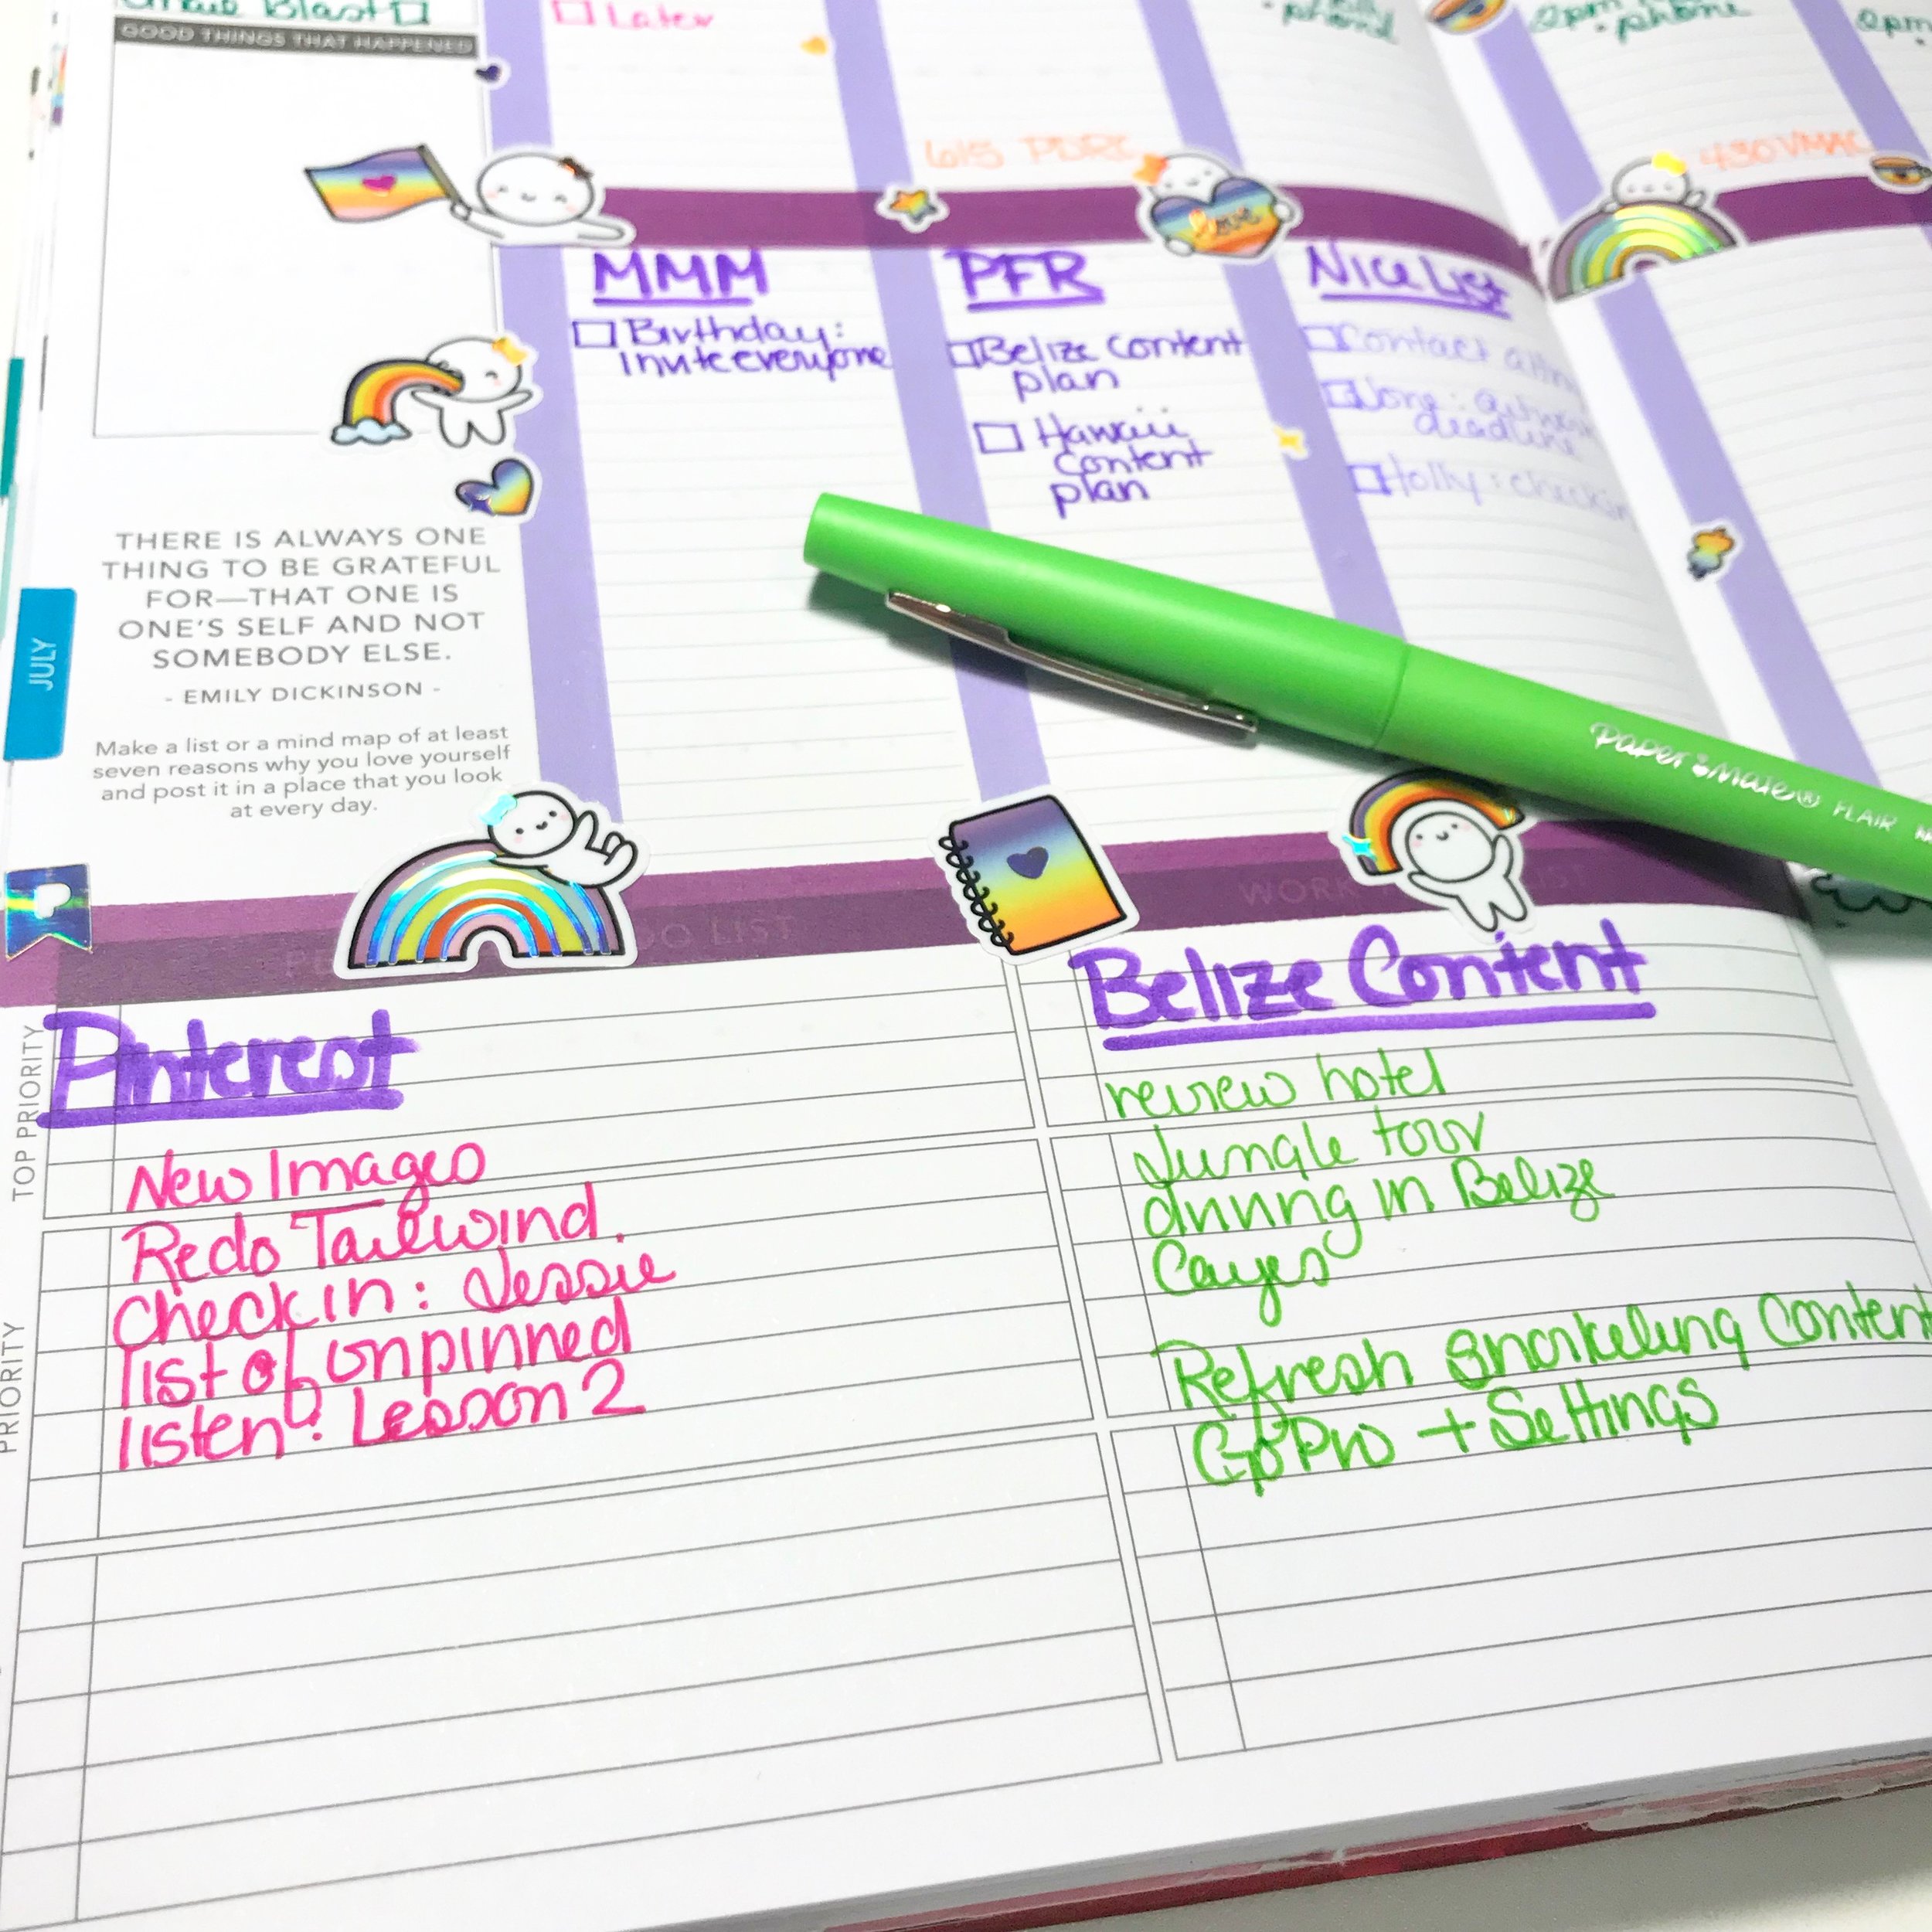 Blast
Later
phone
2pm
phone
GOOD THINGS THAT HAPPENED
615
430 VMAC
Love
MMM
Birthday:
Invite everyone
PFR
Belize Content
plan
Hawaii
Content
plan
Nice List
Contact
deadline
Holly: checkin
THERE IS ALWAYS ONE
THING TO BE GRATEFUL
FOR—THAT ONE IS
ONE'S SELF AND NOT
SOMEBODY ELSE.
- EMILY DICKINSON -
Make a list or a mind map of at least
seven reasons why you love yourself
and post it in a place that you look
at every day.
JULY
Paper Mate® FLAIR
DO LIST
WORK LIST
TOP PRIORITY
PRIORITY
Pinterest
New Images
Redo Tailwind.
Check in: Jessie
list of unpinned
listen: Lesson 2
Belize Content
review hotel
Jungle tour
driving in Belize
Cayes
Refresh Snorkeling Content
GoPro + Settings